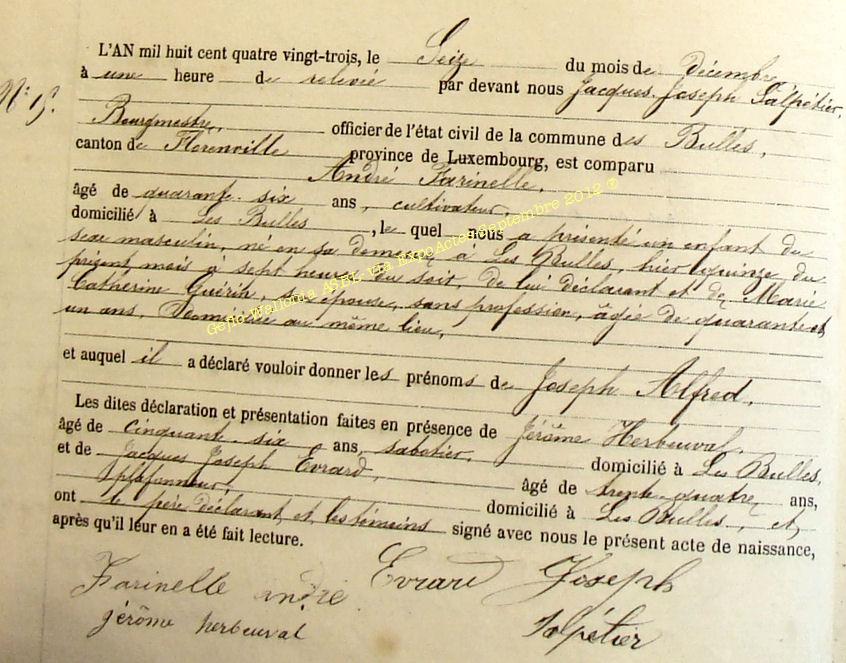 L'AN mil huit cent quatre vingt-trois, le Seize du mois de décembre,
N° 15.
à une heure de relevée par devant nous Jacques Joseph Salpétier,
Bourgmestre, officier de l'état civil de la commune des Bulles,
canton de Florenville province de Luxembourg, est comparu
André Farinelle,
âgé de quarante-six ans, cultivateur,
domicilié à Les Bulles, le quel nous a présenté un enfant du
sexe masculin, né en sa demeure à Les Bulles, hier quinze du
présent mois à sept heures du soir, de lui déclarant et de Marie
Catherine Guérin, son épouse, sans profession, âgée de quarante et
un ans, domiciliée au même lieu,
et auquel il a déclaré vouloir donner les prénoms de Joseph Alfred.
Les dites déclaration et présentation faites en présence de Jérôme Herbeuval,
âgé de cinquante-six ans, sabotier, domicilié à Les Bulles,
et de Jacques Joseph Evrard, âgé de trente-quatre ans,
plafonneur, domicilié à Les Bulles, et
ont le père déclarant et les témoins signé avec nous le présent acte de naissance,
après qu'il leur en a été fait lecture.
Farinelle andré Evrard Joseph
jérôme herbeuval Salpétier
Geneo Wallonia ASBL via ExpoActes Septembre 2012 ®